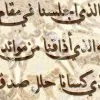 الذي اجلسنا في مقا
والذي أذاقنا من موائد
ذي كسانا حلل صدق